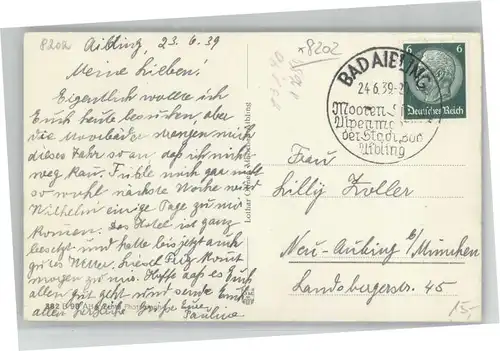 8202
Aibling, 23.6.39
x8202
Meine Lieben!
Eigentlich wollte ich
Euch heute besuchen, aber
die Moorbäder strengen mich
dieses Jahr so an, daß ich nicht
weg kan. Fühle mich gar nicht
so wohl nächste Woche wird
Wilhelm einige Tage zu mir
komen. Das Hotel ist ganz
besetzt und hatte bis jetzt auch
gutes Wetter. Liesel
morgen zu mir. Hoffe daß es Euch
allen gut geht und sende Euch
allen herzliche Grüße Eure
Pauline
BAD AIBLING
24.6.39
Mooren
Alpen
der Stadt Bad
Aibling
6 6
Deutsches Reich
Frau
Lilly Zoller
Neu-Aubing b/München
Landsbergerstr. 45
15,-